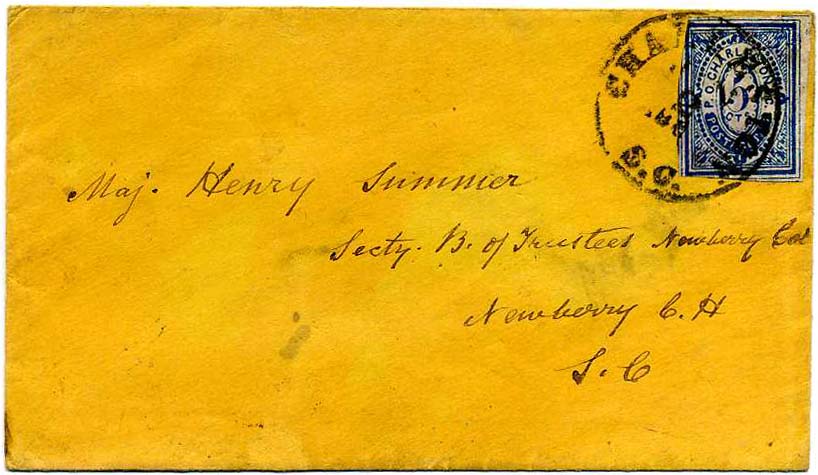 CHARLESTON
S.C.
P.O. CHARLESTON, S.C.
5
CTS
POSTAGE
Maj. Henry Summer
Secty. B. of Trustees Newberry Col
Newberry C. H
S. C